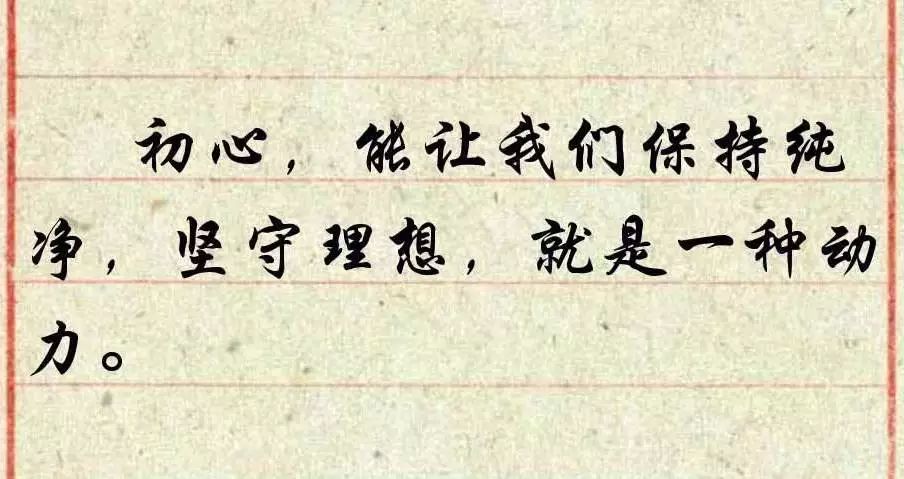 初心，能让我们保持纯
净，坚守理想，就是一种动
力。